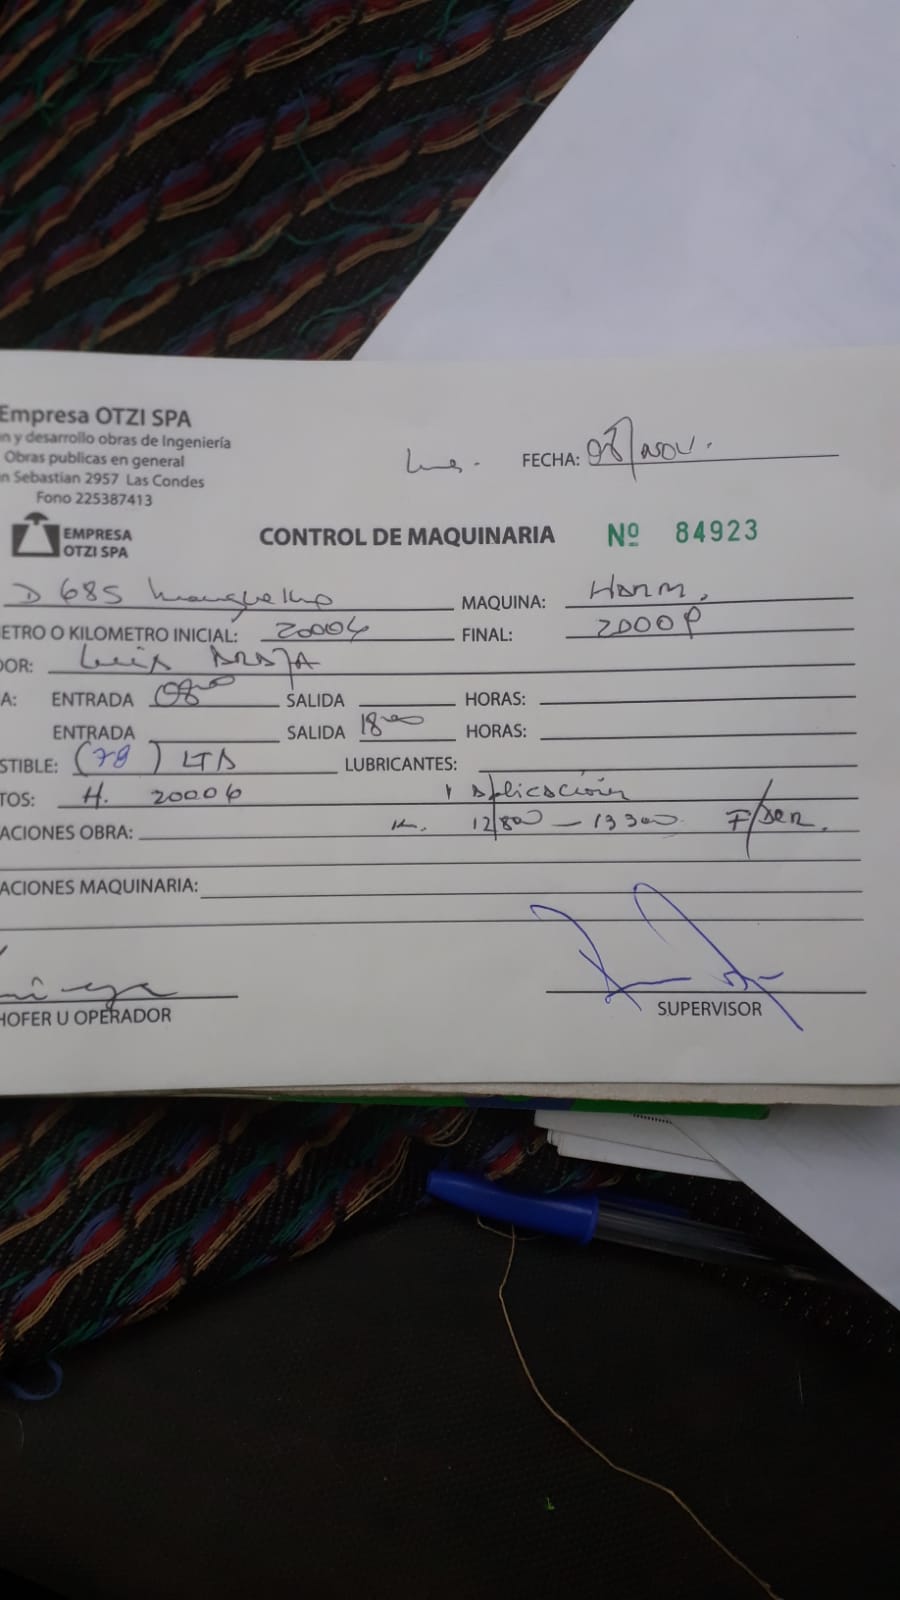 Empresa OTZI SPA
n y desarrollo obras de Ingeniería
Obras publicas en general
n Sebastian 2957 Las Condes
Fono 225387413
FECHA: 08/NOV.
EMPRESA
OTZI SPA
CONTROL DE MAQUINARIA Nº 84923
D 685 MAQUINA: Hamm.
ETRO O KILOMETRO INICIAL: 20004 FINAL: 20008
DOR: Luis
A: ENTRADA 08:00 SALIDA HORAS:
ENTRADA SALIDA 18:00 HORAS:
STIBLE: (78) LTS LUBRICANTES:
TOS: H. 20006 Aplicación
ACIONES OBRA: K. 12/800 - 13300 F/Der.
ACIONES MAQUINARIA:
HOFER U OPERADOR SUPERVISOR